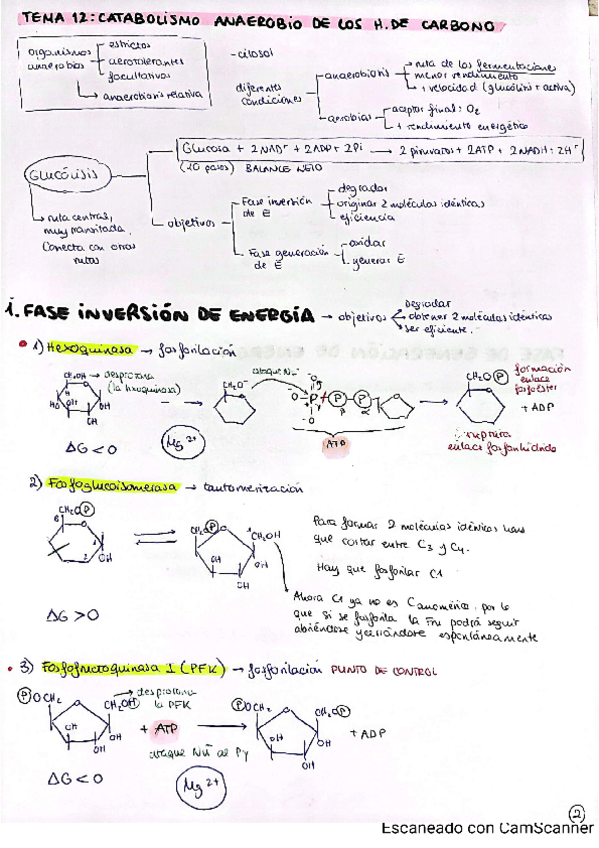 TEMA 12: CATABOLISMO ANAEROBIO DE LOS H. DE CARBONO
organismos anaerobios
estrictos
aerotolerantes
facultativos
anaerobiosis relativa
- citosol
diferentes condiciones
anaerobiosis
ruta de los fermentaciones
menor rendimiento
+ velocidad (glucólisis + activa)
aerobios
aceptor final: O2
+ rendimiento energético
GLUCÓLISIS
Glucosa + 2NAD+ + 2ADP + 2Pi → 2 piruvatos + 2ATP + 2NADH + 2H+
(10 pasos) BALANCE NETO
ruta central,
muy transitada.
Conecta con otras
rutas
objetivos
Fase inversión
de E
degradar
originar 2 moléculas idénticas
eficiencia
Fase generación
de E
oxidar
generar E
1. FASE INVERSIÓN DE ENERGÍA → objetivos
Degradar
obtener 2 moléculas idénticas
ser eficiente.
1) Hexoquinasa → fosforilación
CH2OH → desprotona
(la hexoquinasa)
OH
OH
CH2O-
ataque Nu-
O- P O
P
P
ATP
CH2O P
formación
enlace
fosfoéster
+ ADP
ruptura
enlace fosfanhídrido
ΔG < 0
Mg2+
2) Fosfoglucoisomerasa → tautomerización
CH2O P
OH
CH2O P
CH2OH
OH
OH
Para formar 2 moléculas idénticas hay
que cortar entre C3 y C4.
Hay que fosforilar C1
Ahora C1 ya no es Canomérico, por lo
que si se fosforila la Fru podrá seguir
abriéndose y cerrándose espontáneamente
ΔG > 0
3) Fosfofructoquinasa 1 (PFK) → fosforilación PUNTO DE CONTROL
P OCH2
CH2OH → desprotona
la PFK
OH
OH
+ ATP
ataque Nu al Pγ
P OCH2
CH2O P
OH
OH
+ ADP
ΔG < 0
Mg2+
2
Escaneado con CamScanner